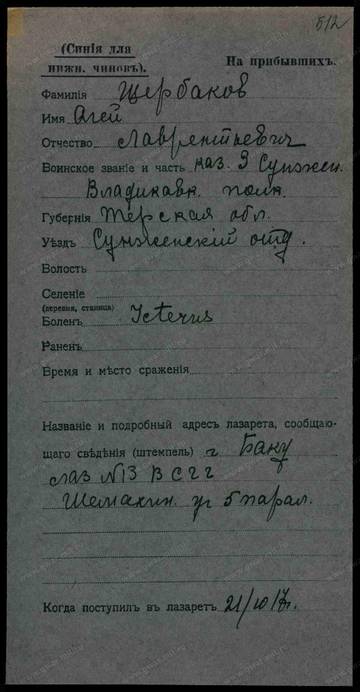 512
(Синія для
нижн. чиновъ).
На прибывшихъ.
Фамилія Щербаков
Имя Агей
Отчество Лаврентьевич
Воинское званіе и часть каз. 3 Сунжен.
Владикавк. полк.
Губернія Терская обл.
Уѣздъ Сунженскій отд.
Волость
Селеніе
(деревня, станица)
Боленъ Icterus
Раненъ
Время и мѣсто сраженія
Названіе и подробный адресъ лазарета, сообщаю-
щаго свѣдѣнія (штемпель) г Баку
лаз N13 В С Г Г
Шемахин. уг 5 парал.
Когда поступил въ лазаретъ 21/10 17г.